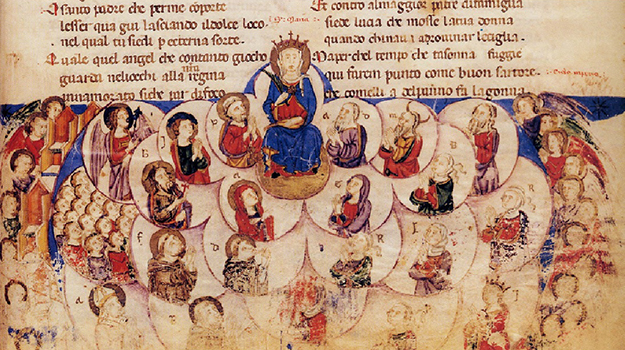 O santo padre che perme coporte
lesser qua giu lasciando ildolce loco
nel qual tu siedi p eterna sorte.
Quale quel angel che contanto giocho
guarda neliocchi alla nra regina
innamorato siche par difoco
Et contro almaggior padre difamiglia
siede lucia che mosse latua donna
quando chinaui aruinar leciglia.
Ma perchel tempo che tasonna fuggie
qui farem punto come buon sartore
che comelli a delpanno fa lagonna
Maria
h
J
p
a
o
b
a
D
R
f
d
R
L
J